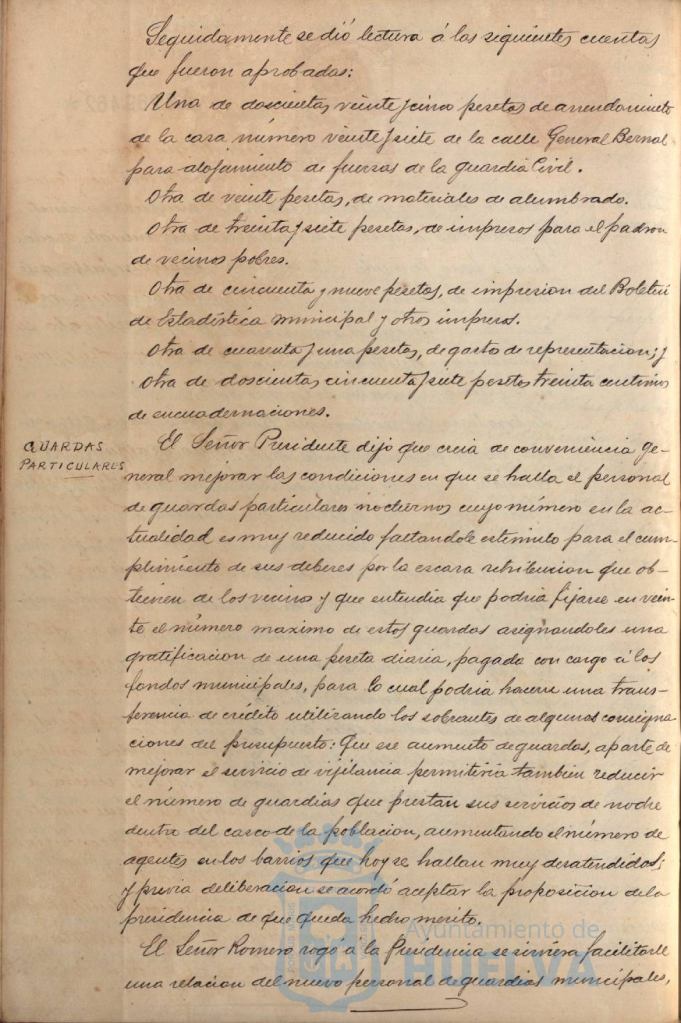 Seguidamente se dió lectura á las siguientes cuentas
que fueron aprobadas:
Una de doscientas veinte y cinco pesetas de arrendamiento
de la casa número veinte y siete de la calle General Bernal
para alojamiento de fuerzas de la guardia Civil.
Otra de veinte pesetas, de materiales de alumbrado.
Otra de treinta y siete pesetas, de impresos para el padron
de vecinos pobres.
Otra de cincuenta y nueve pesetas, de impresion del Boletin
de Estadística municipal y otros impresos.
Otra de cuarenta y una pesetas, de gastos de representacion; y
Otra de doscientas cincuenta y siete pesetas treinta centimos
de encuadernaciones.
GUARDAS
PARTICULARES
El Señor Presidente dijo que creia de conveniencia ge-
neral mejorar las condiciones en que se halla el personal
de guardas particulares nocturnos cuyo número en la ac-
tualidad es muy reducido faltandole estimulo para el cum-
plimiento de sus deberes por la escasa retribucion que ob-
tienen de los vecinos y que entendia que podria fijarse en vein-
te el número maximo de estos guardas asignandoles una
gratificacion de una peseta diaria, pagada con cargo á los
fondos municipales, para lo cual podria hacerse una trans-
ferencia de crédito utilizando los sobrantes de algunas consigna-
ciones del presupuesto: Que ese aumento de guardas, aparte de
mejorar el servicio de vigilancia permitiria tambien reducir
el número de guardias que prestan sus servicios de noche
dentro del casco de la poblacion, aumentando el número de
agentes en los barrios que hoy se hallan muy desatendidos;
y previa deliberacion se acordó aceptar la proposicion de la
presidencia de que queda hecho merito.
El Señor Romero rogó á la Presidencia se sirviera facilitarle
una relacion del nuevo personal de guardias municipales,
Ayuntamiento de
HUELVA